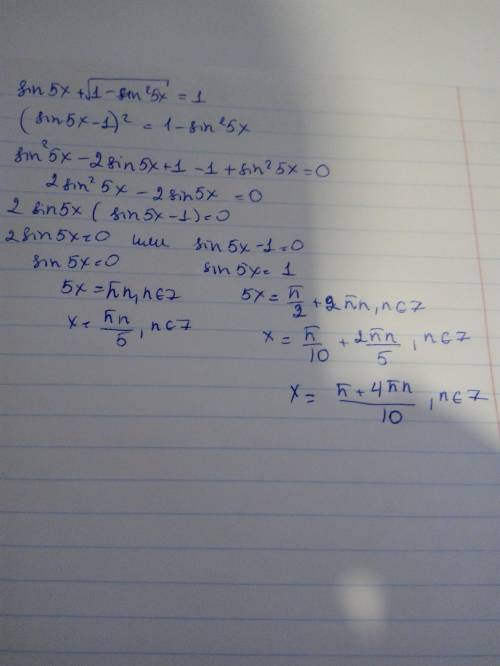 sin 5x + √(1 - sin²5x) = 1
(sin5x - 1)² = 1 - sin²5x
sin²5x - 2sin5x + 1 - 1 + sin²5x = 0
2sin²5x - 2sin5x = 0
2 sin5x (sin5x - 1) = 0
2sin5x = 0 или sin5x - 1 = 0
sin5x = 0 sin5x = 1
5x = πn, n∈Z 5x = π/2 + 2πn, n∈Z
x = πn/5, n∈Z x = π/10 + 2πn/5, n∈Z
x = (π + 4πn)/10, n∈Z